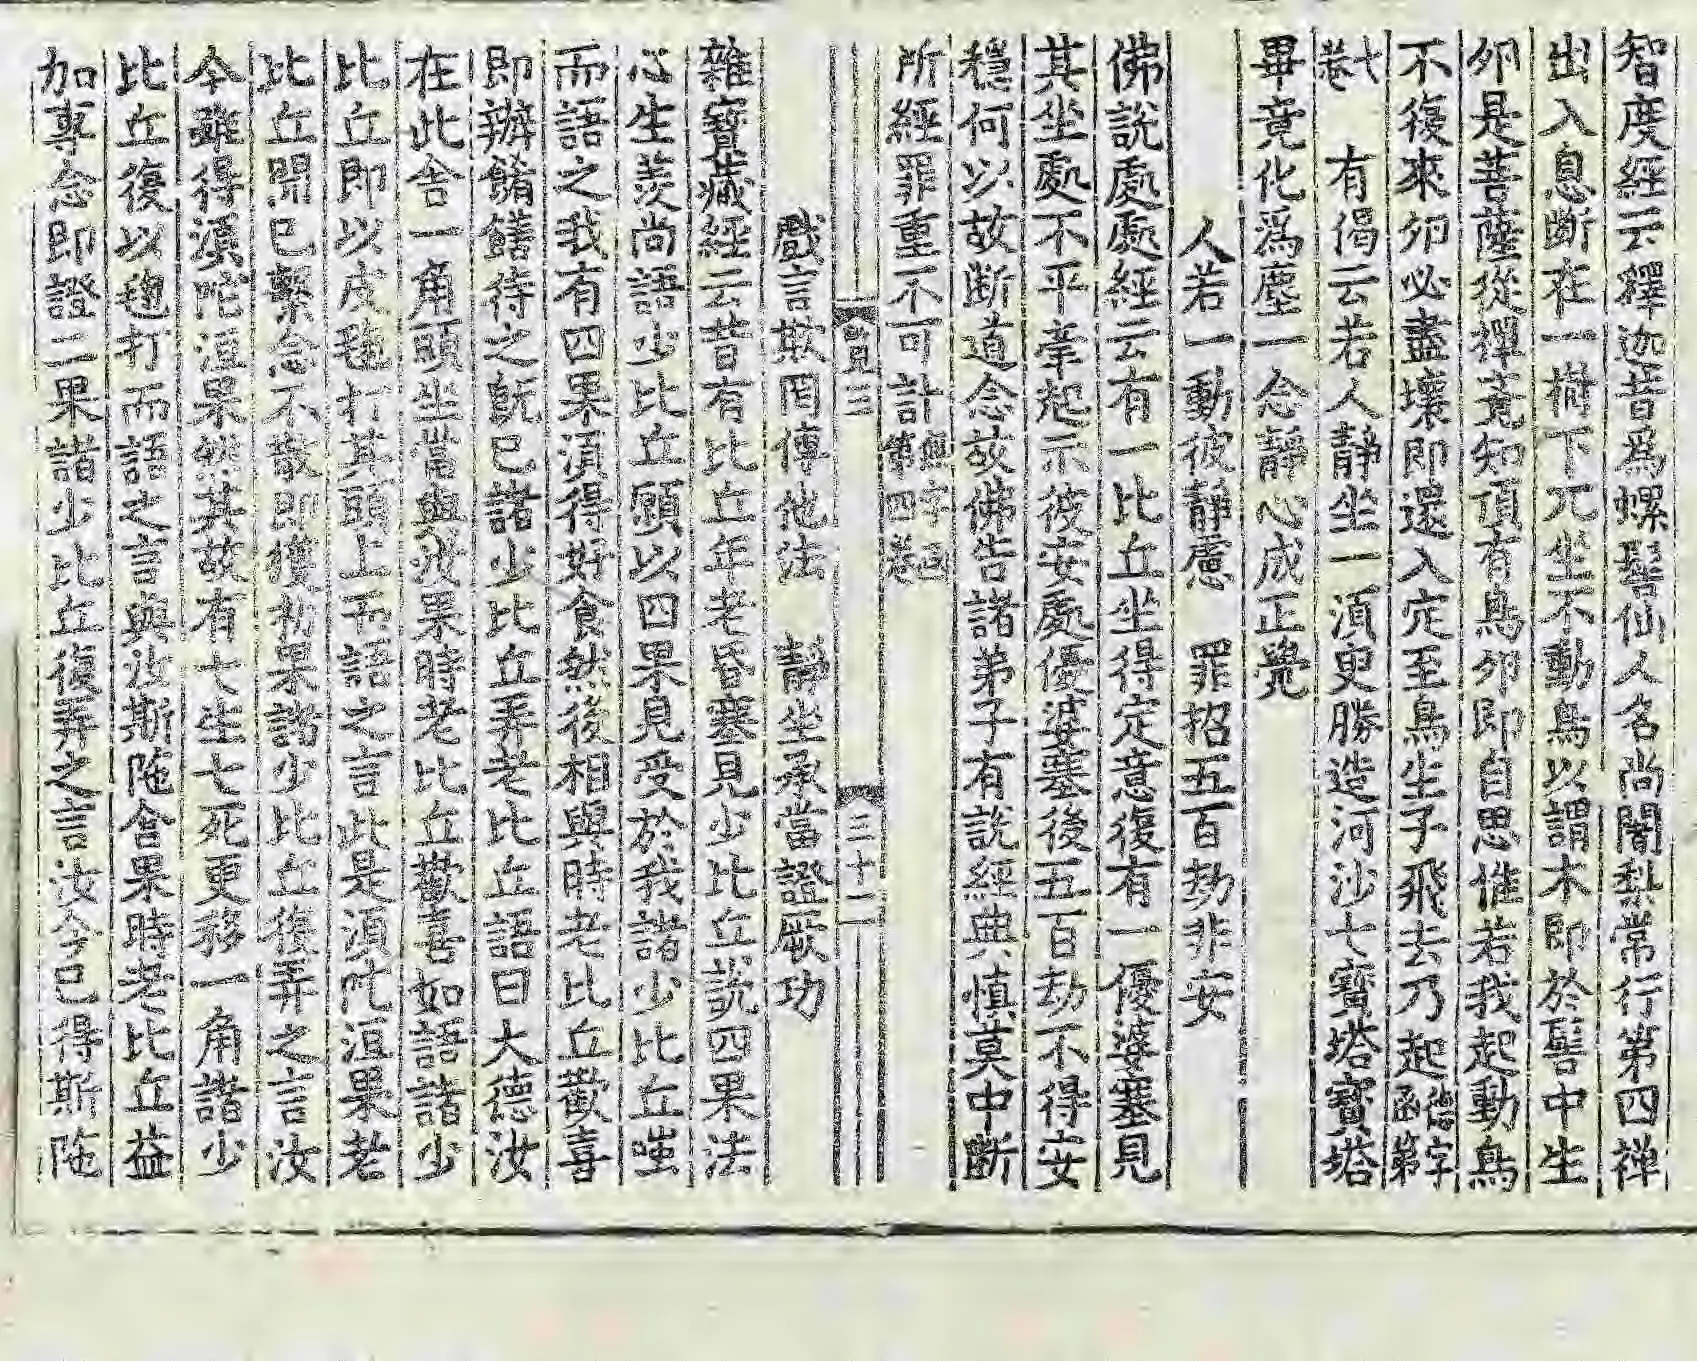 智度經云釋迦昔爲螺髻仙人名尚闍梨常行第四禅
出入息斷在一樹下兀坐不動鳥以謂木即於髻中生
夘是菩薩從禪竟知頂有鳥夘即自思惟若我起動鳥
不復來夘必盡壞即還入定至鳥生子飛去乃起函德字第
七卷　有偈云若人静坐一湏臾勝造河沙七寶塔寶塔
畢竟化爲塵一念静心成正覺
人若一動彼静慮　罪招五百劫非安
佛說處處經云有一比丘坐得定意復有一優婆塞見
其坐處不平牽起示彼安處優婆塞後五百劫不得安
穏何以故断道念故佛告諸弟子有說經典慎莫中斷
所經罪重不可計第四卷
三
三十二
戲言欺罔傳他法　静坐承當證厥功
雜寶藏經云昔有比丘年老昏塞見少比丘說四果法
心生羨尚語少比丘願以四果見受於我諸少比丘嗤
而語之我有四果湏得好食然後相與時老比丘歡喜
即辦餚饍待之旣已諸少比丘弄老比丘語曰大德汝
在此舍一角頭坐當與汝果時老比丘歡喜如語諸少
比丘即以皮毱打其頭上而語之言此是湏陁洹果老
比丘聞已繫念不散即獲初果諸少比丘復弄之言汝
今雖得湏陁洹果然其故有七生七死更移一角諸少
比丘復以毱打而語之言與汝斯陁含果時老比丘益
加專念即證二果諸少比丘復弄之言汝今已得斯陁